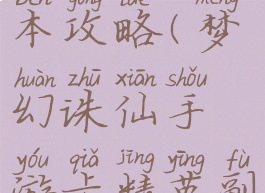 běn gōng lüè mèng
本攻略(梦
huàn zhū xiān shǒu
幻诛仙手
yóu qiǎ jīng yīng fù
游卡精英副